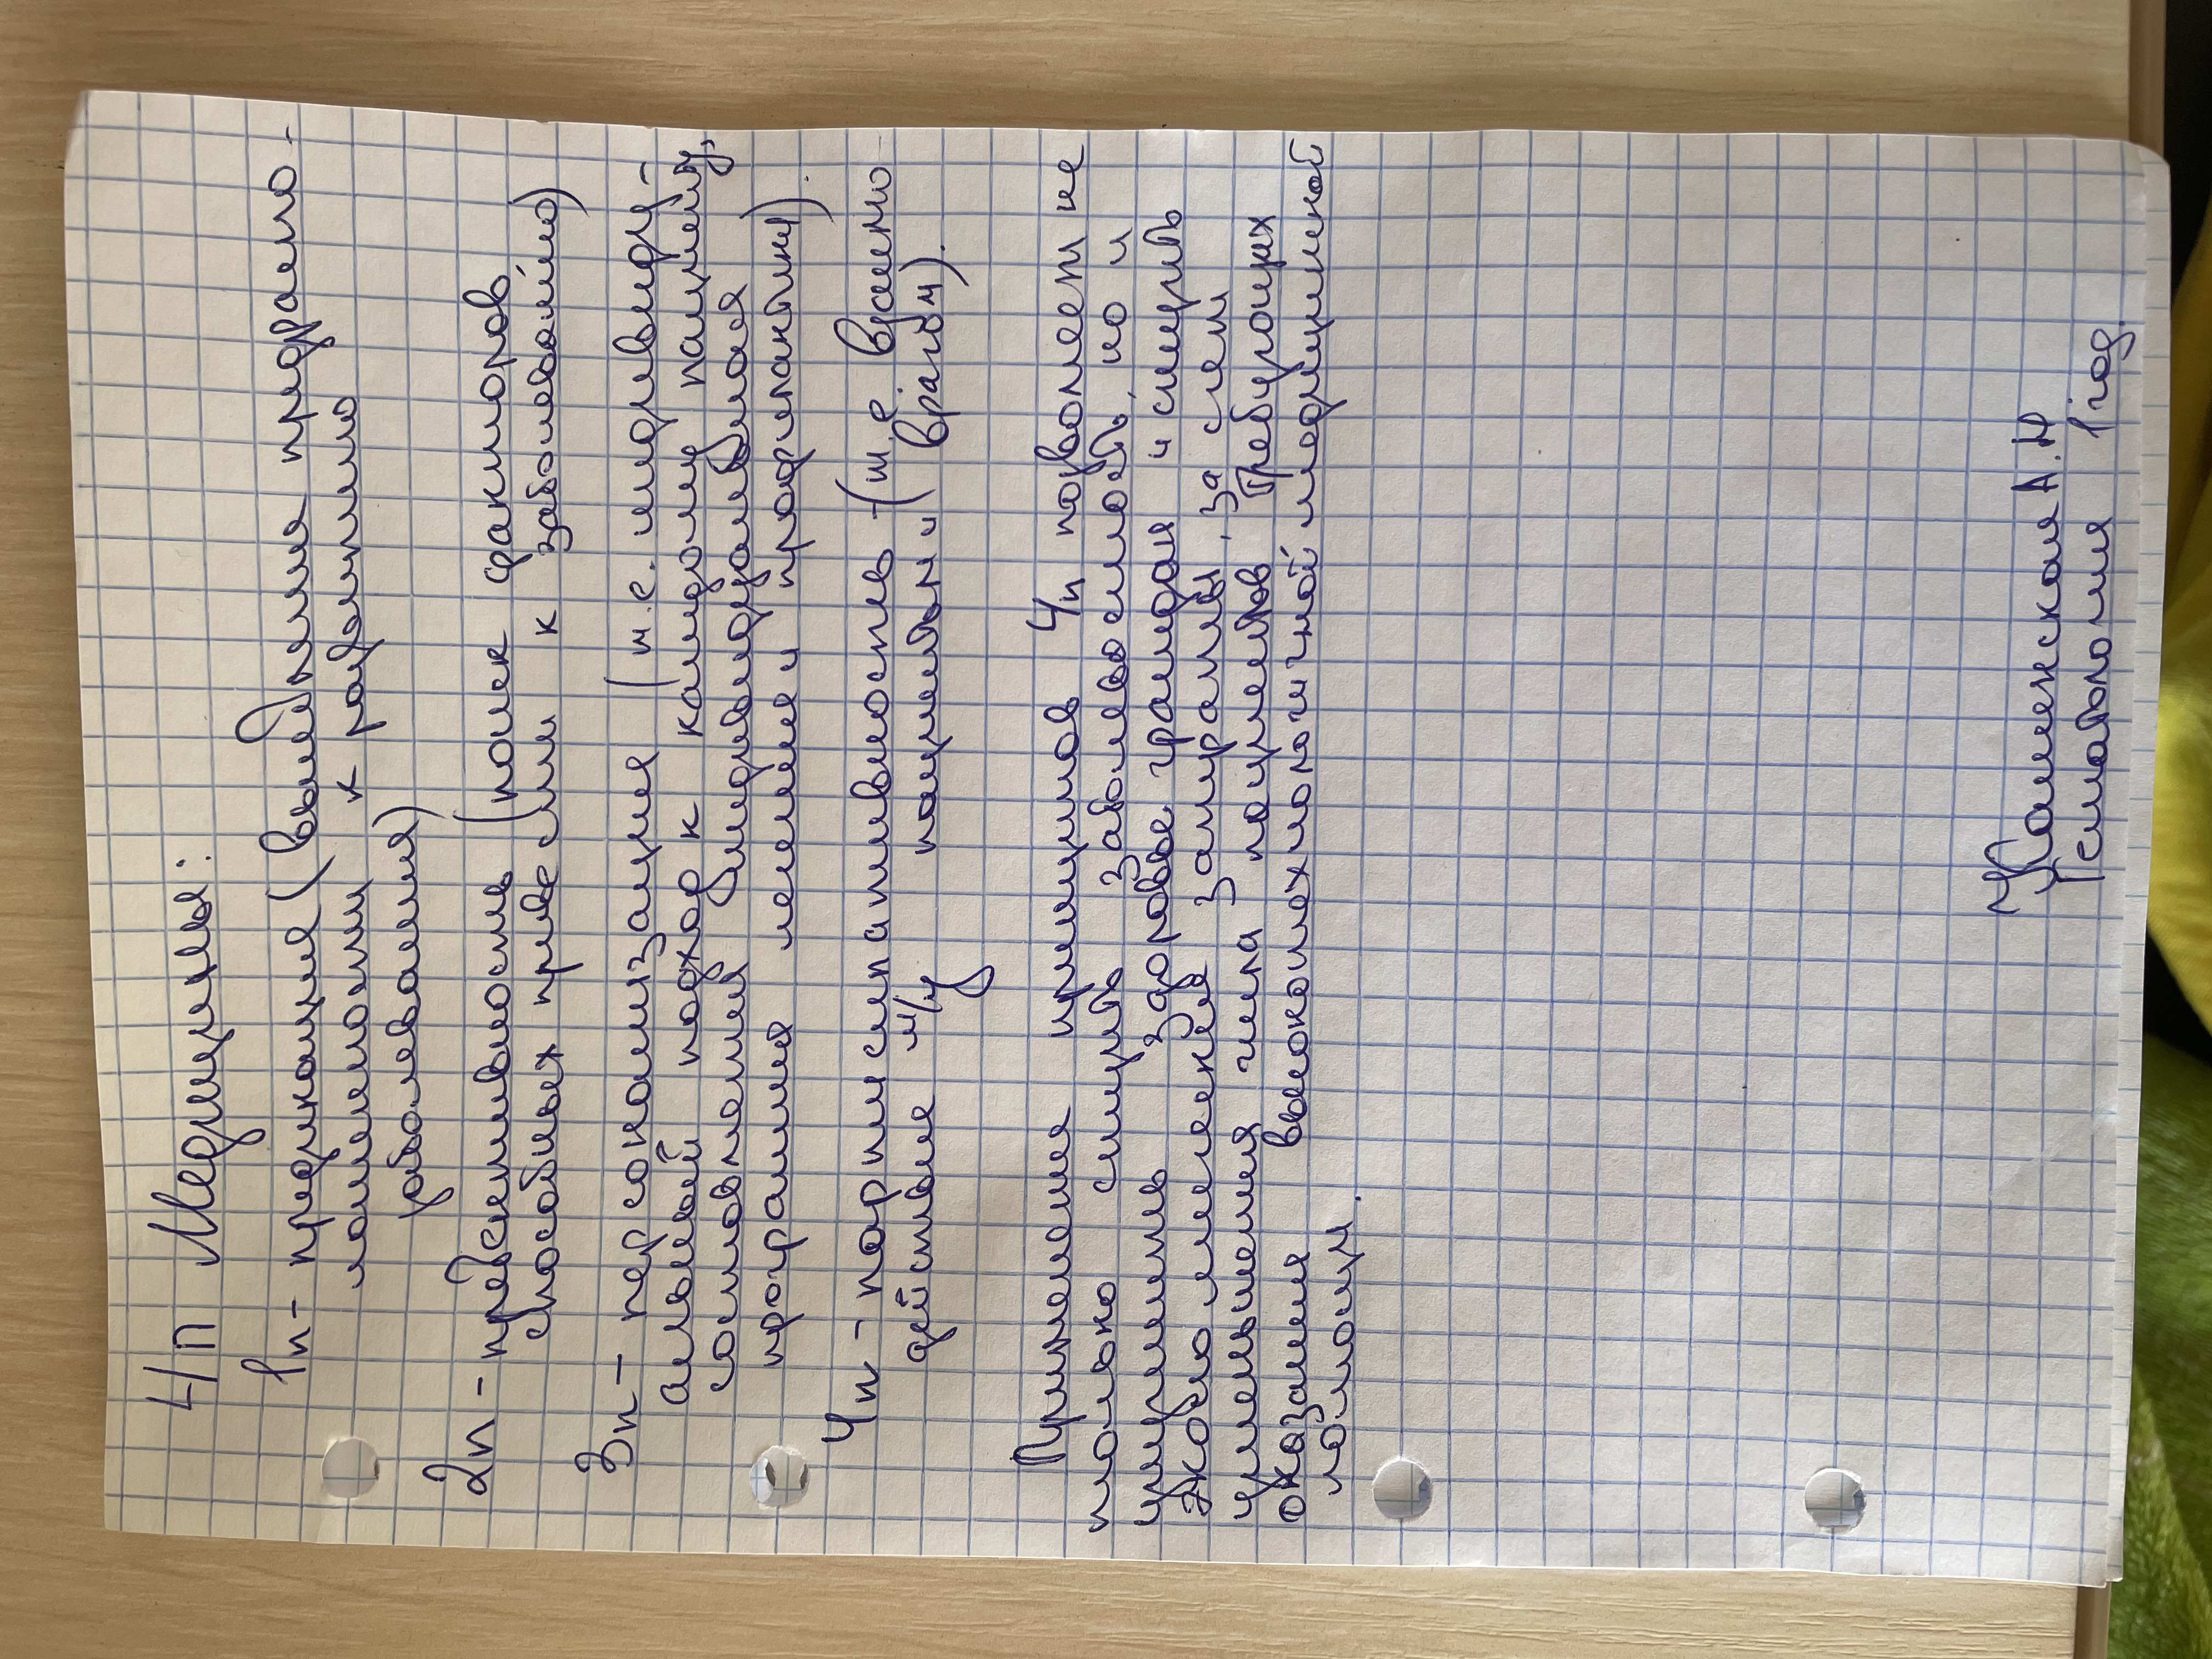 4П Медицины:
1п - предикация (выявления предраспо-
ложенности к развитию
заболевания)
2п - превентивность (поиск факторов
способных привести к заболеванию)
3п - персонализация (т.е. индивиду-
альный подход к каждому пациенту,
составления индивидуальная
программа лечения и профилактики).
4п - партисипативность (т.е. взаимо-
действие м/у пациентом и врагом).
Применения принципов 4п позволяет не
только снизить заболеваемость, но и
укрепить здоровье граждан и снизить
экономические затраты, за счет
уменьшения числа пациентов требующих
оказания высокотехнологичной медицинской
помощи.
Каменская А.Н
1 год.